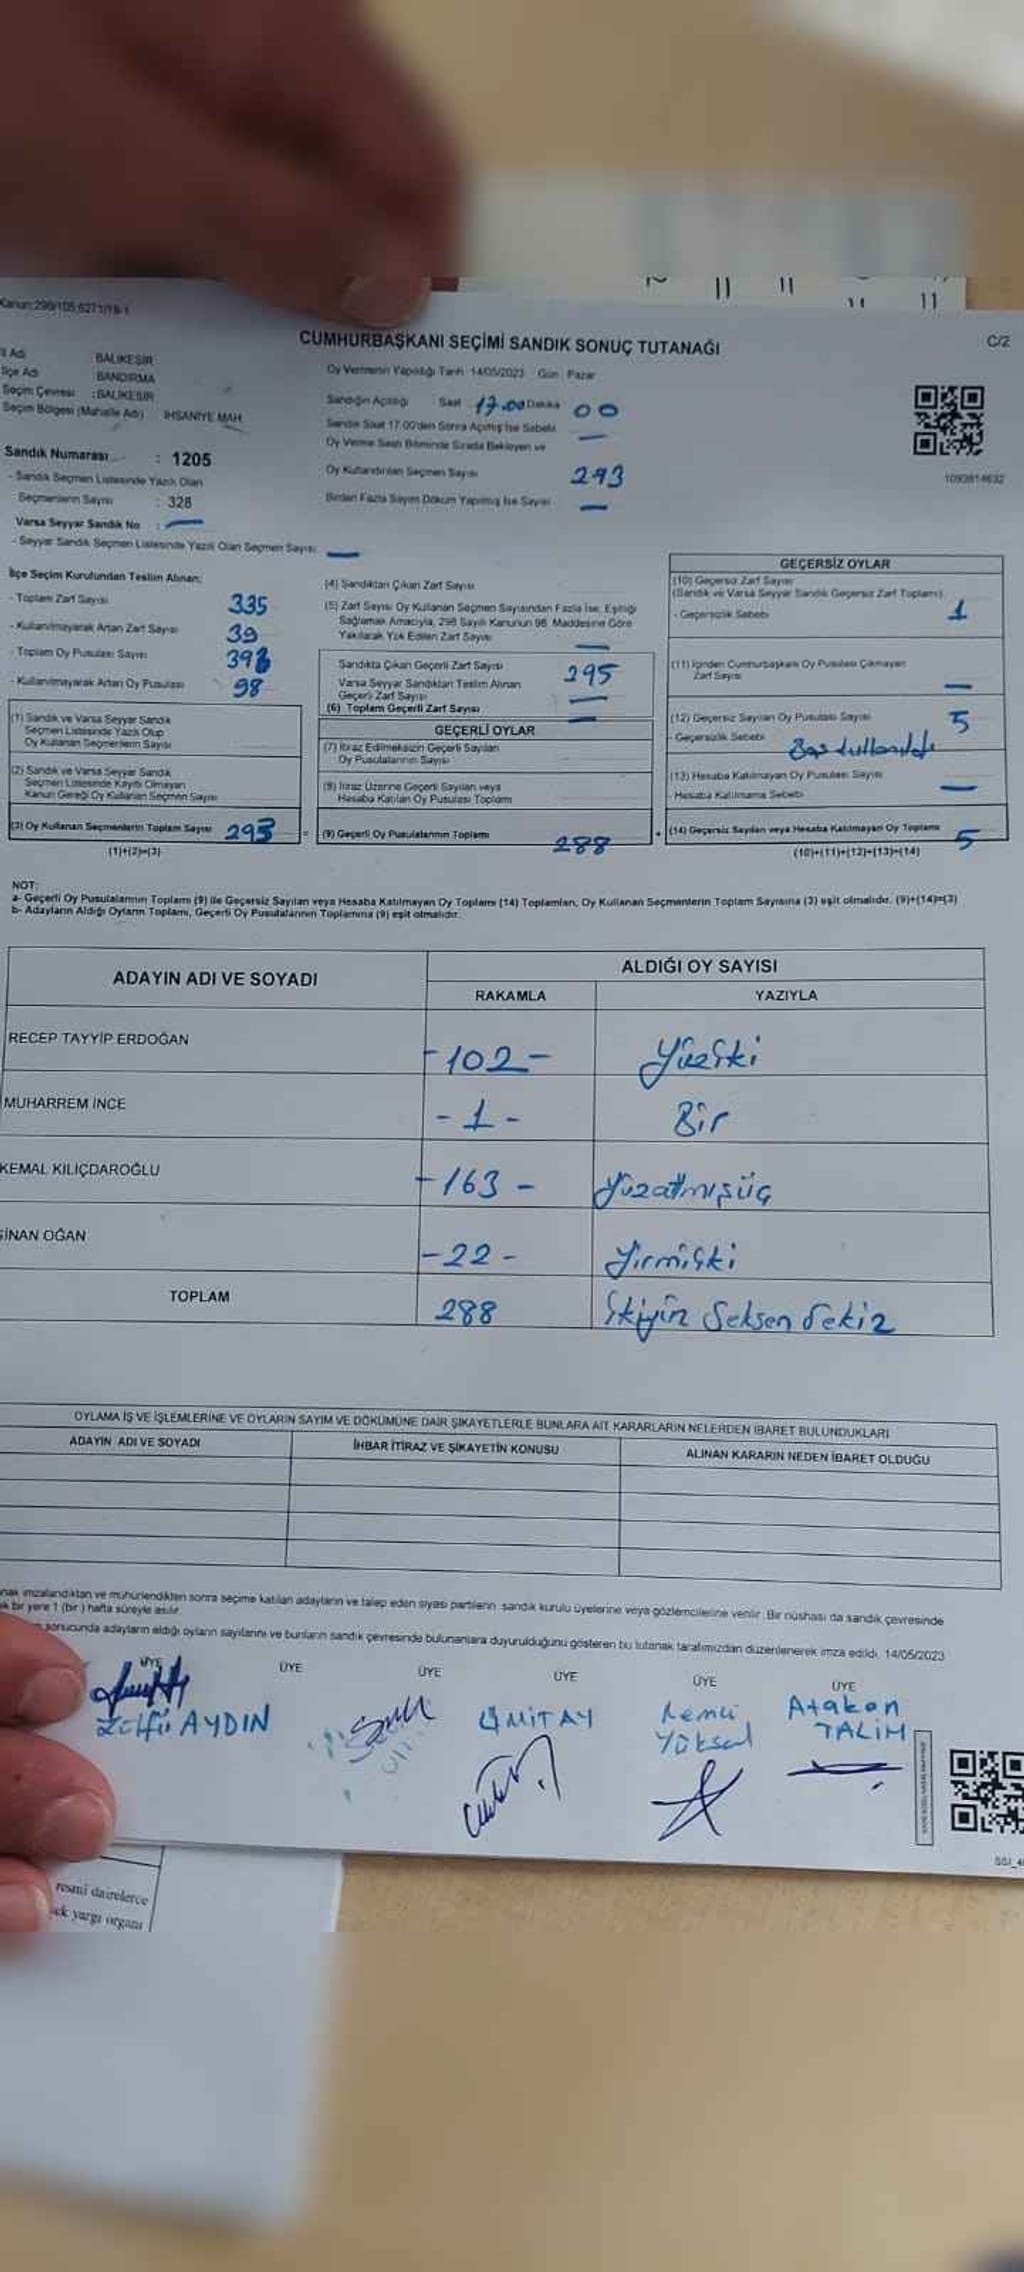 Kanun:298/105,6271/19-1
CUMHURBAŞKANI SEÇİMİ SANDIK SONUÇ TUTANAĞI
C/2
İl Adı BALIKESİR
İlçe Adı BANDIRMA
Seçim Çevresi :BALIKESİR
Seçim Bölgesi (Mahalle Adı) İHSANİYE MAH.
Sandık Numarası : 1205
- Sandık Seçmen Listesinde Yazılı Olan
Seçmenlerin Sayısı : 328
Varsa Seyyar Sandık No : —
- Seyyar Sandık Seçmen Listesinde Yazılı Olan Seçmen Sayısı: —
Oy Vermenin Yapıldığı Tarih 14/05/2023 Gün Pazar
Sandığın Açılışı Saat 17.00 Dakika 00
Sandık Saat 17:00'den Sonra Açılmış İse Sebebi —
Oy Verme Saati Bitiminde Sırada Bekleyen ve
Oy Kullandırılan Seçmen Sayısı 293
Birden Fazla Sayım Döküm Yapılmış İse Sayısı —
1090814632
İlçe Seçim Kurulundan Teslim Alınan:
- Toplam Zarf Sayısı 335
- Kullanılmayarak Artan Zarf Sayısı 39
- Toplam Oy Pusulası Sayısı
- Kullanılmayarak Artan Oy Pusulası 98
(1) Sandık ve Varsa Seyyar Sandık
Seçmen Listesinde Yazılı Olup
Oy Kullanan Seçmenlerin Sayısı
(2) Sandık ve Varsa Seyyar Sandık
Seçmen Listesinde Kayıtlı Olmayan
Kanun Gereği Oy Kullanan Seçmen Sayısı
(3) Oy Kullanan Seçmenlerin Toplam Sayısı 293
(1)+(2)=(3)
(4) Sandıktan Çıkan Zarf Sayısı
(5) Zarf Sayısı Oy Kullanan Seçmen Sayısından Fazla İse, Eşitliği
Sağlamak Amacıyla, 298 Sayılı Kanunun 98. Maddesine Göre
Yakılarak Yok Edilen Zarf Sayısı —
Sandıkta Çıkan Geçerli Zarf Sayısı 295
Varsa Seyyar Sandıktan Teslim Alınan
Geçerli Zarf Sayısı —
(6) Toplam Geçerli Zarf Sayısı —
GEÇERLİ OYLAR
(7) İtiraz Edilmeksizin Geçerli Sayılan
Oy Pusulalarının Sayısı
(8) İtiraz Üzerine Geçerli Sayılan veya
Hesaba Katılan Oy Pusulası Toplamı
= (9) Geçerli Oy Pusulalarının Toplamı 288
GEÇERSİZ OYLAR
(10) Geçersiz Zarf Sayısı
(Sandık ve Varsa Seyyar Sandık Geçersiz Zarf Toplamı)
- Geçersizlik Sebebi 1
(11) İçinden Cumhurbaşkanı Oy Pusulası Çıkmayan
Zarf Sayısı —
(12) Geçersiz Sayılan Oy Pusulası Sayısı 5
- Geçersizlik Sebebi
(13) Hesaba Katılmayan Oy Pusulası Sayısı
- Hesaba Katılmama Sebebi —
+ (14) Geçersiz Sayılan veya Hesaba Katılmayan Oy Toplamı 5
(10)+(11)+(12)+(13)=(14)
NOT:
a- Geçerli Oy Pusulalarının Toplamı (9) ile Geçersiz Sayılan veya Hesaba Katılmayan Oy Toplamı (14) Toplamları, Oy Kullanan Seçmenlerin Toplam Sayısına (3) eşit olmalıdır. (9)+(14)=(3)
b- Adayların Aldığı Oyların Toplamı, Geçerli Oy Pusulalarının Toplamına (9) eşit olmalıdır.
ADAYIN ADI VE SOYADI
ALDIĞI OY SAYISI
RAKAMLA YAZIYLA
RECEP TAYYİP ERDOĞAN -102- Yüziki
MUHARREM İNCE -1- Bir
KEMAL KILIÇDAROĞLU -163- Yüzatmışüç
SİNAN OĞAN -22- Yirmiiki
TOPLAM 288 İkiyüz Seksen Sekiz
OYLAMA İŞ VE İŞLEMLERİNE VE OYLARIN SAYIM VE DÖKÜMÜNE DAİR ŞİKAYETLERLE BUNLARA AİT KARARLARIN NELERDEN İBARET BULUNDUKLARI
ADAYIN ADI VE SOYADI İHBAR İTİRAZ VE ŞİKAYETİN KONUSU ALINAN KARARIN NEDEN İBARET OLDUĞU
imzalandıktan ve mühürlendikten sonra seçime katılan adayların ve talep eden siyasi partilerin sandık kurulu üyelerine veya gözlemcilerine verilir. Bir nüshası da sandık çevresinde
bir yere 1 (bir) hafta süreyle asılır.
sonucunda adayların aldığı oyların sayılarını ve bunların sandık çevresinde bulunanlara duyurulduğunu gösteren bu tutanak tarafımızdan düzenlenerek imza edildi. 14/05/2023
ÜYE ÜYE ÜYE ÜYE ÜYE ÜYE
AYDIN
ÜMİT AY
Remzi
Yüksel
Atakan
TALİM
resmî dairelerce
yargı organı